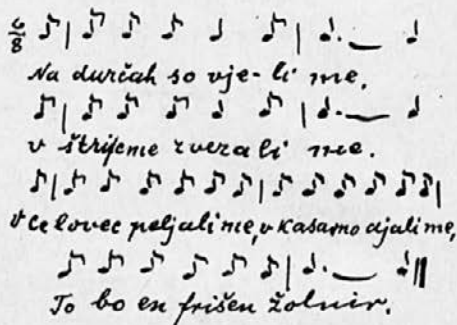 6/8
Na durčah so vje-li me,
v štrijeme zvezali me.
v Celovec peljali me, v kasarno djali me,
To bo en frišen žolnir.